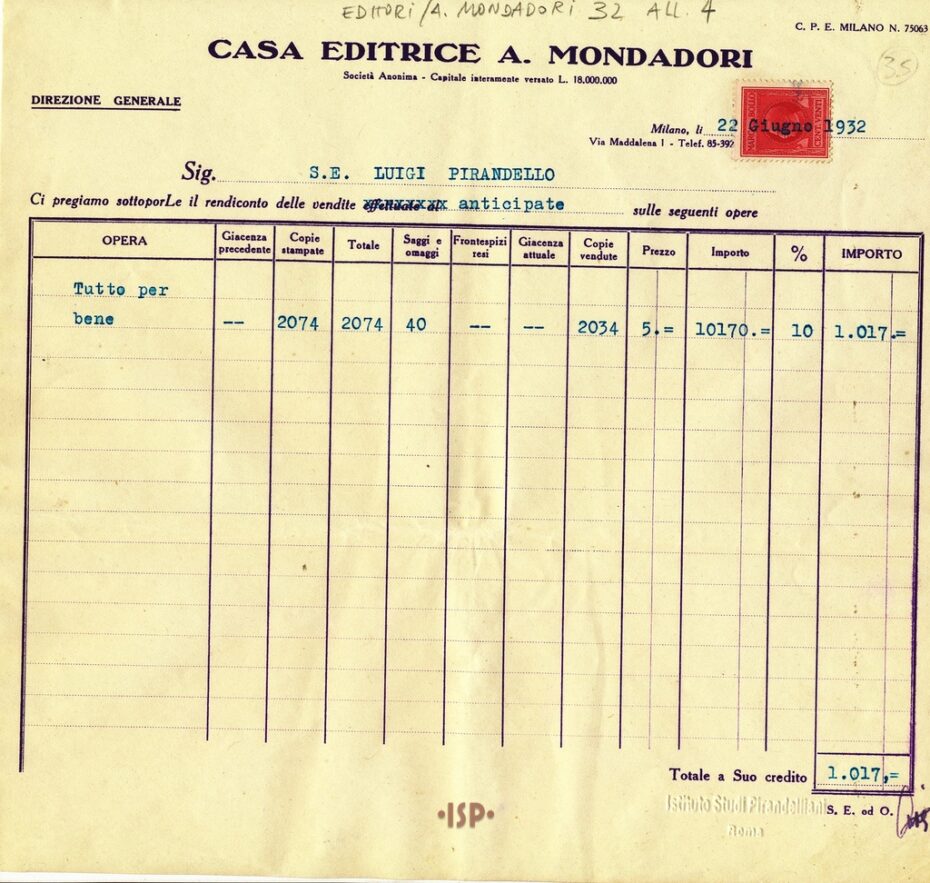 EDITORI/A. MONDADORI 32 ALL. 4
C. P. E. MILANO N. 75063
35
CASA EDITRICE A. MONDADORI
Società Anonima - Capitale interamente versato L. 18.000.000
DIREZIONE GENERALE
MARCA DA BOLLO CENT. VENTI
Milano, li 22 Giugno 1932
Via Maddalena 1 - Telef. 85-392
Sig. S.E. LUIGI PIRANDELLO
Ci pregiamo sottoporLe il rendiconto delle vendite effettuate al anticipate sulle seguenti opere
OPERA Giacenza precedente Copie stampate Totale Saggi e omaggi Frontespizi resi Giacenza attuale Copie vendute Prezzo Importo % IMPORTO
Tutto per
bene -- 2074 2074 40 -- -- 2034 5.= 10170.= 10 1.017.=
Totale a Suo credito 1.017,=
S. E. od O.
·ISP·
Istituto Studi Pirandelliani
Roma